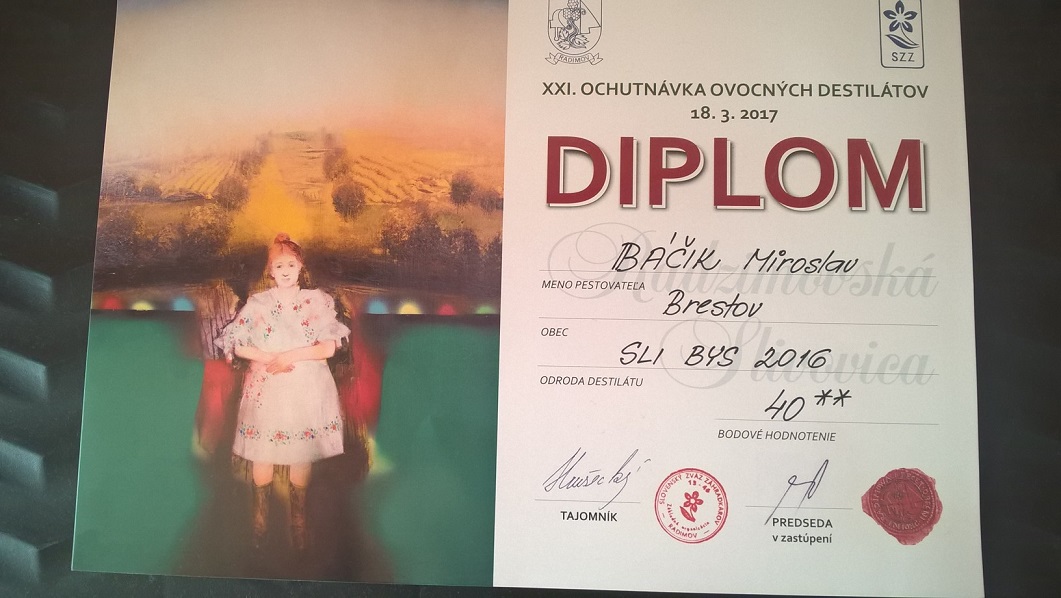 RADIMOV
SZZ
XXI. OCHUTNÁVKA OVOCNÝCH DESTILÁTOV
18. 3. 2017
DIPLOM
Radzimovská
Slivovica
BÁČIK Miroslav
MENO PESTOVATEĽA
Brestov
OBEC
SLI BYS 2016
ODRODA DESTILÁTU
40**
BODOVÉ HODNOTENIE
TAJOMNÍK
SLOVENSKÝ ZVÄZ ZÁHRADKÁROV
RADIMOV
PREDSEDA
v zastúpení